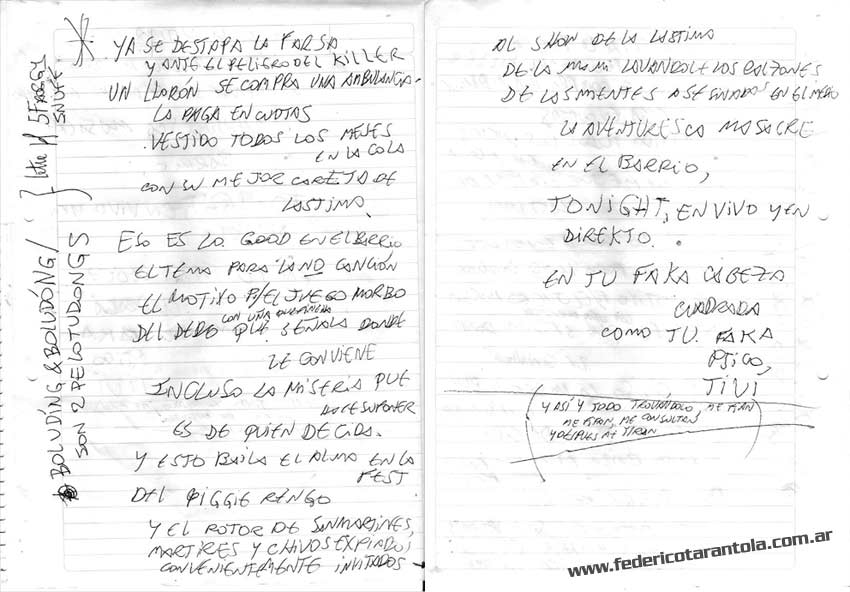 YA SE DESTAPA LA FARSA
Y ANTE EL PELIGRO DEL KILLER
UN LLORÓN SE COMPRA UNA AMBULANCIA.
LA PAGA EN CUOTAS
VESTIDO TODOS LOS MESES
EN LA COLA
CON SU MEJOR CARETA DE
LASTIMA.
ESO ES LO GOOD EN EL BARRIO
EL TEMA PARA LA NO CANCIÓN
EL MOTIVO P/EL JUEGO MORBO
CON UNA
DEL DEDO QUE SEÑALA DONDE
LE CONVIENE
INCLUSO LA MISERIA QUE
SUPONER
ES DE QUIEN DECIDA.
Y ESTO BAILA EL ALMA EN LA
FEST
DEL PIGGIE RINGO
Y EL ROTOR DE SANMARTINES,
MARTIRES Y CHIVOS EXPIADOS
CONVENIENTEMENTE INVITADOS
BOLUDÍNG & BOLUDÓNG/
SON 2 PELOTUDONGS
SNUFF.
AL SHOW DE LA LASTIMA
DE LA MAMI LAVANDOLE LOS CALZONES
DE LAS MENTES ASESINADAS EN EL MEDIO
LA AVENTURESCA MASACRE
EN EL BARRIO,
TONIGHT, EN VIVO Y EN
DIREKTO.
EN TU FAKA CABEZA
CUADRADA
COMO TU FAKA
PSICO,
TIVI
(Y ASÍ Y TODO
ME CONSULTAN
Y DESPUES ME TIRAN)
www.federicotarantola.com.ar